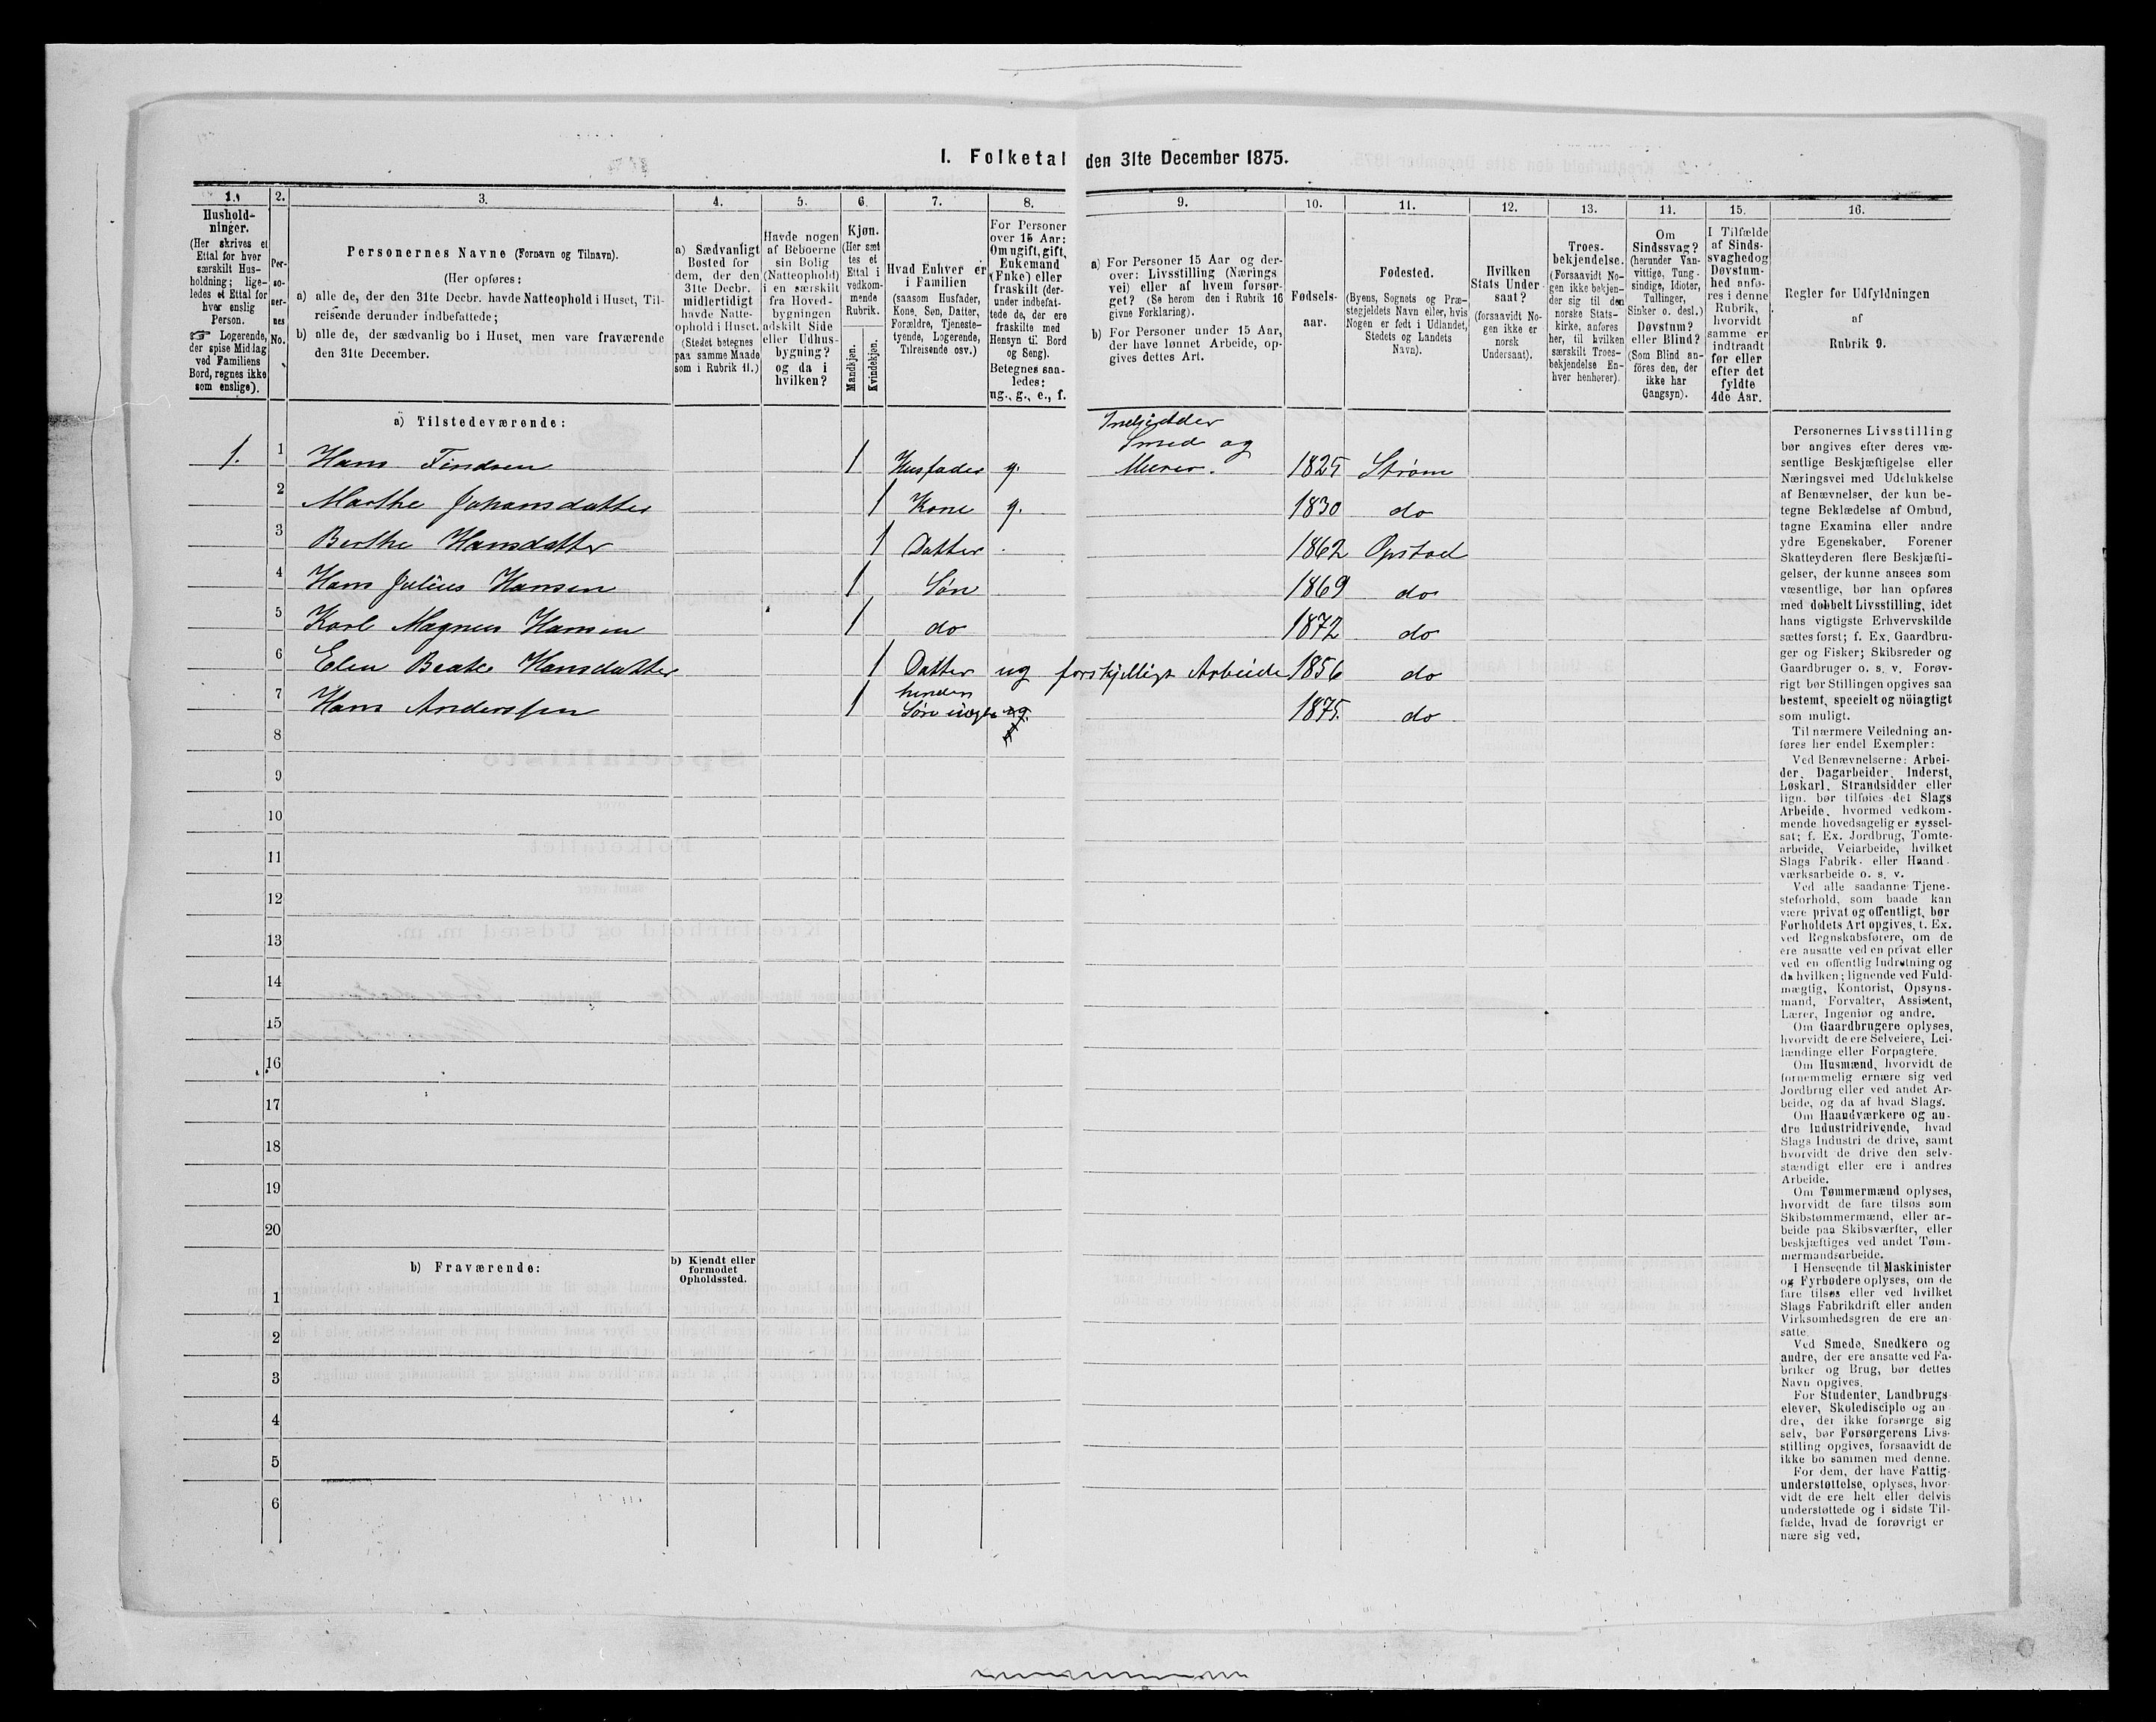 I. Folketal den 31te December 1875.
1. 2. 3. 4. 5. 6. 7. 8. 9. 10. 11. 12. 13. 14. 15. 16.
Hushold-
ninger.
(Her skrives et
Ettal for hver
særskilt Hus-
holdning; lige-
ledes et Ettal for
hver enslig
Person.
☞ Logerende,
der spise Middag
ved Familiens
Bord, regnes ikke
som enslige).
Per-
so-
ner-
nes
No.
Personernes Navne (Fornavn og Tilnavn).
(Her opføres:
a) alle de, der den 31te Decbr. havde Natteophold i Huset, Til-
reisende derunder indbefattede;
b) alle de, der sædvanlig bo i Huset, men vare fraværende
den 31te December.
a) Sædvanligt
Bosted for
dem, der den
31te Decbr.
midlertidigt
havde Natte-
ophold i Huset.
(Stedet betegnes
paa samme Maade
som i Rubrik 11.)
Havde nogen
af Beboerne
sin Bolig
(Natteophold)
i en særskilt
fra Hoved-
bygningen
adskilt Side
eller Udhus-
bygning?
og da i
hvilken?
Kjøn.
(Her sæt
tes et
Ettal i
vedkom-
mende
Rubrik.
Mandkjøn.
Kvindekjøn.
Hvad Enhver er
i Familien
(saasom Husfader,
Kone, Søn, Datter,
Forældre, Tjeneste-
tyende, Logerende,
Tilreisende osv.)
For Personer
over 15 Aar:
Om ugift, gift,
Enkemand
(Enke) eller
fraskilt (der-
under indbefat-
tede de, der ere
fraskilte med
Hensyn til Bord
og Seng).
Betegnes saa-
ledes:
ug., g., e., f.
a) For Personer 15 Aar og der-
over: Livsstilling (Nærings
vei) eller af hvem forsør-
get? (Se herom den i Rubrik 16
givne Forklaring).
b) For Personer under 15 Aar,
der have lønnet Arbeide, op-
gives dettes Art.
Fødsels-
aar.
Fødested.
(Byens, Sognets og Præ-
stegjeldets Navn eller, hvis
Nogen er født i Udlandet,
Stedets og Landets
Navn).
Hvilken
Stats Under-
saat?
(forsaavidt No-
gen ikke er
norsk
Undersaat).
Troes-
bekjendelse.
(Forsaavidt No-
gen ikke bekjen-
der sig til den
norske Stats-
kirke, anføres
her, til hvilken
særskilt Troes-
bekjendelse En-
hver henhører).
Om
Sindssvag?
(herunder Van-
vittige, Tung-
sindige, Idioter,
Tullinger,
Sinker o. desl.)
Døvstum?
eller Blind?
(Som Blind an-
føres den, der
ikke har
Gangsyn).
I Tilfælde
af Sinds-
svaghed og
Døvstum-
hed anfø-
res i denne
Rubrik,
hvorvidt
samme er
indtraadt
før eller
efter det
fyldte
4de Aar.
Regler for Udfyldningen
af
Rubrik 9.
a) Tilstedeværende:
Inderster
Smed og
1. 1 Hans Findsen 1 Husfader g. Murer. 1825 Strøm
2 Marthe Johansdatter 1 Kone g. 1830 do
3 Berthe Hansdatter 1 Datter 1862 Opstad
4 Hans Julius Hansen 1 Søn 1869 do
5 Karl Magnus Hansen 1 do 1872 do
6 Elen Beate Hansdatter 1 Datter ug forskjelligt Arbeide 1856 do
7 Hans Anderssen 1 hendes
Søn uægte 1875. do
8
9
10
11
12
13
14
15
16
17
18
19
20
b) Fraværende:
b) Kjendt eller
formodet
Opholdssted.
1
2
3
4
5
6
Personernes Livsstilling
bør angives efter deres væ-
sentlige Beskjæftigelse eller
Næringsvei med Udelukkelse
af Benævnelser, der kun be-
tegne Beklædelse af Ombud,
tagne Examina eller andre
ydre Egenskaber. Forener
Skatteyderen flere Beskjæfti-
gelser, der kunne ansees som
væsentlige, bør han opføres
med dobbelt Livsstilling, idet
hans vigtigste Erhvervskilde
sættes først; f. Ex. Gaardbru-
ger og Fisker; Skibsreder og
Gaardbruger o. s. v. Forøv-
rigt bør Stillingen opgives saa
bestemt, specielt og nöiagtigt
som muligt.
Til nærmere Veiledning an-
føres her endel Exempler:
Ved Benævnelserne: Arbei-
der, Dagarbeider, Inderst,
Løskarl, Strandsidder eller
lign. bør tilføies det Slags
Arbeide, hvormed vedkom-
mende hovedsagelig er syssel-
sat; f. Ex. Jordbrug, Tomte-
arbeide, Veiarbeide, hvilket
Slags Fabrik- eller Haand-
værksarbeide o. s. v.
Ved alle saadanne Tjene-
steforhold, som baade kan
være privat og offentligt, bør
Forholdets Art opgives, t. Ex.
ved Regnskabsførere, om de
ere ansatte ved en privat eller
ved en offentlig Indretning og
da hvilken; lignende ved Fuld-
mægtig, Kontorist, Opsyns-
mand, Forvalter, Assistent,
Lærer, Ingeniør og andre.
Om Gaardbrugere oplyses,
hvorvidt de ere Selveiere, Lei-
lændinge eller Forpagtere.
Om Husmænd, hvorvidt de
fornemmelig ernære sig ved
Jordbrug eller ved andet Ar-
beide, og da af hvad Slags.
Om Haandværkere og an-
dre Industridrivende, hvad
Slags Industri de drive, samt
hvorvidt de drive den selv-
stændigt eller ere i andres
Arbeide.
Om Tømmermænd oplyses,
hvorvidt de fare tilsøs som
Skibstømmermænd, eller ar-
beide paa Skibsværfter, eller
beskjæftiges ved andet Tøm-
mermandsarbeide.
I Henseende til Maskinister
og Fyrbødere oplyses, om de
fare tilsøs eller ved hvilket
Slags Fabrikdrift eller anden
Virksomhedsgren de ere an-
satte.
Ved Smede, Snedkere og
andre, der ere ansatte ved Fa-
briker og Brug, bør dettes
Navn opgives.
For Studenter, Landbrugs-
elever, Skoledisciple og an-
dre, der ikke forsørge sig
selv, bør Forsørgerens Livs-
stilling opgives, forsaavidt de
ikke bo sammen med denne.
For dem, der have Fattig-
understøttelse, oplyses, hvor-
vidt de ere helt eller delvis
understøttede og i sidste Til-
fælde, hvad de forøvrigt er
nære sig ved.